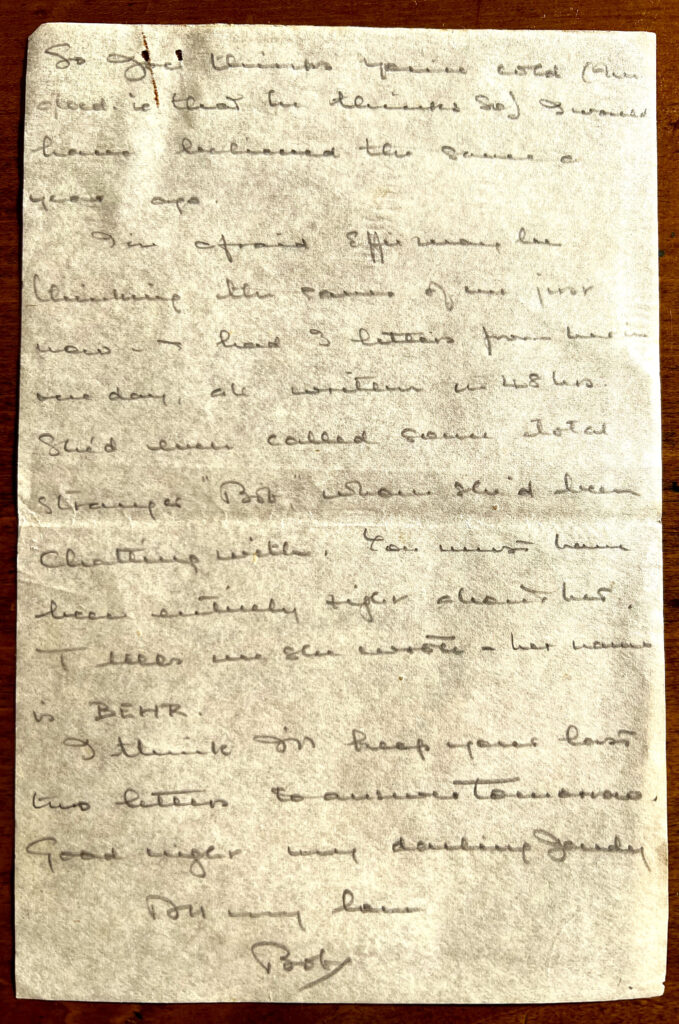 So thinks you're cold (the
deed is that he thinks so) I would
have believed the same a
year ago.
I'm afraid Effie may be
thinking the same of me just
now — had 3 letters from her in
one day, all written in 48 hrs.
She'd even called some total
stranger "Bob" whom she'd been
chatting with. You must have
been entirely right about her.
T me she wrote - her name
is BEHR.
I think I'll keep your last
two letters to answer tomorrow.
Good night my darling
All my love
Bob